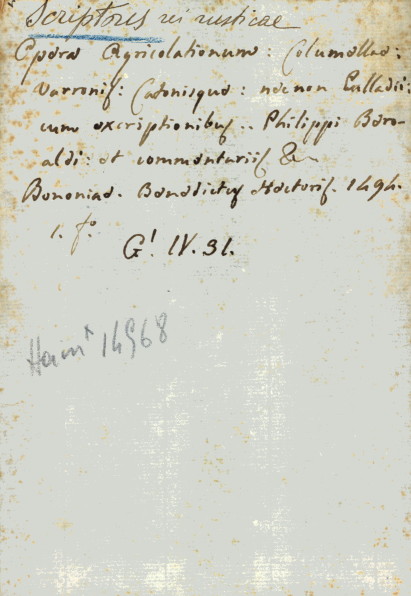 Scriptores rei rusticae
Opera Agricolationum: Columellae:
Varronis: Catonisque: nec non Palladii:
cum excriptionibus.. Philippi Bero-
aldi: et commentariis &
Bononiae. Benedictus Hectoris. 1494.
1. fo.
G! IV. 31.
Hain* 14968